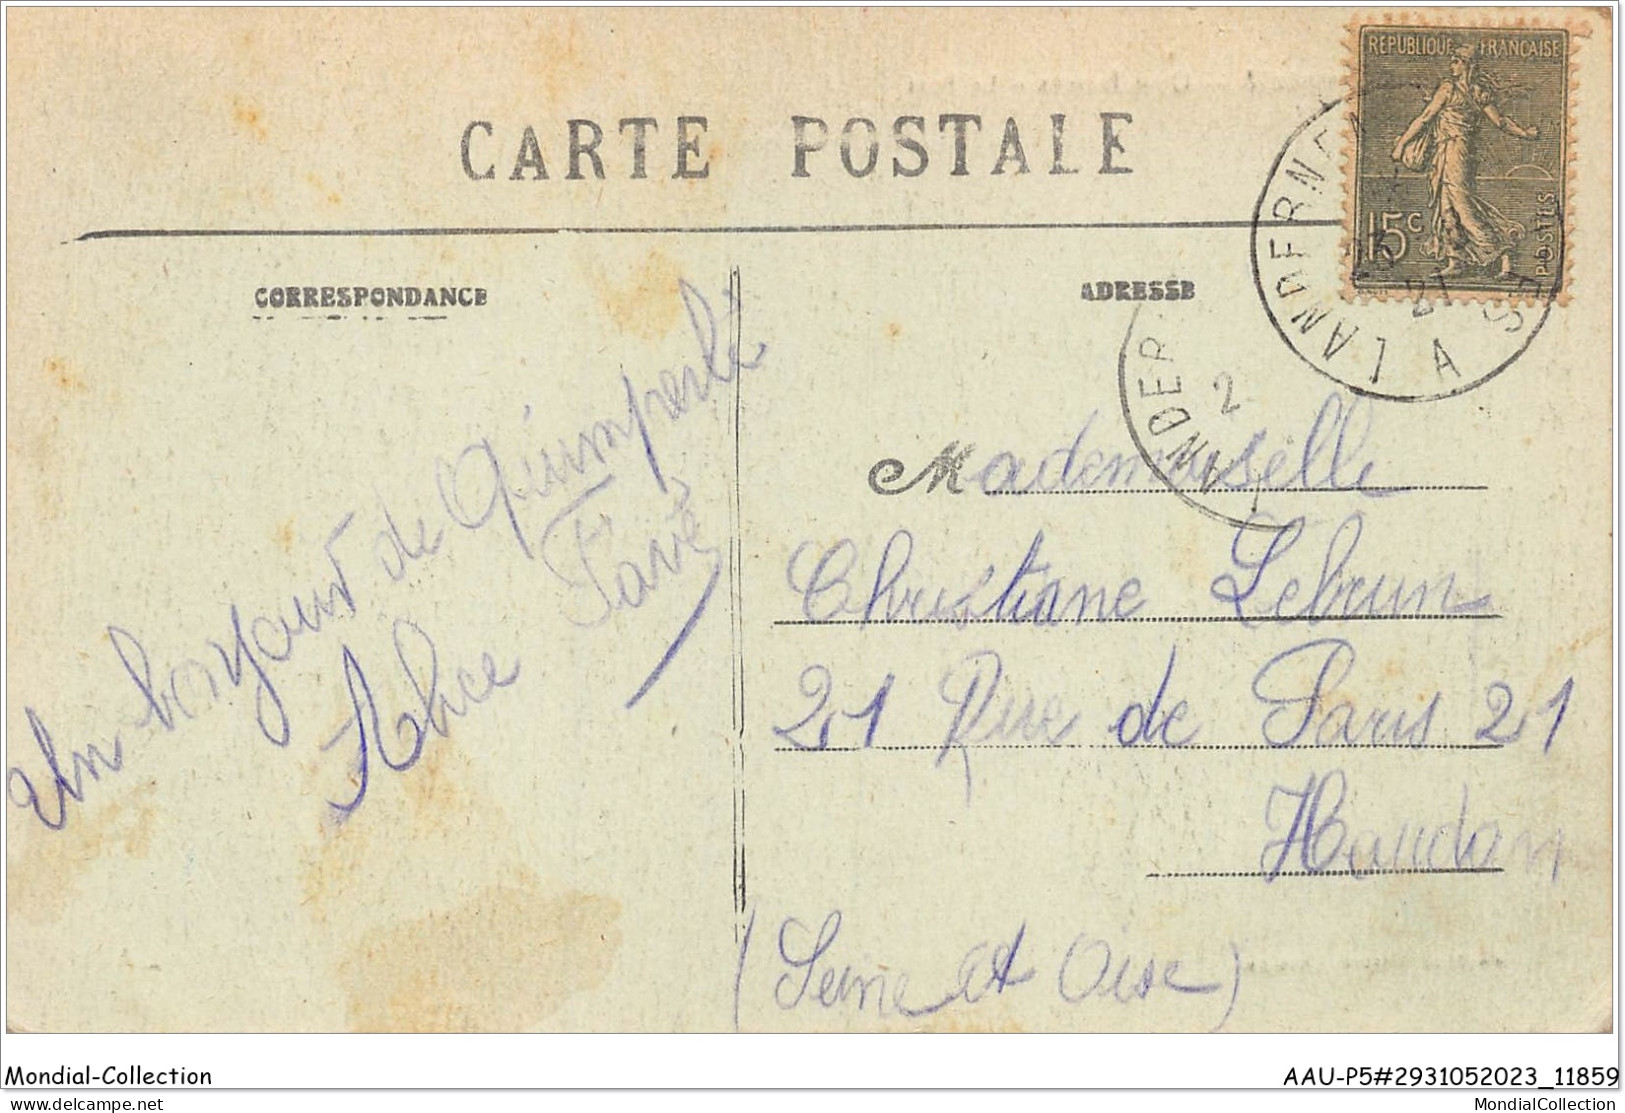 CARTE POSTALE
RÉPUBLIQUE FRANÇAISE
15c
POSTES
LANDERNEA
A
21
CORRESPONDANCE
ADRESSE
NDER
2
Un bonjour de Quimperlé
Alice Favé
Mademoiselle
Christiane Lebrun
21 Rue de Paris 21
Houdan
(Seine et Oise)
Mondial-Collection
AAU-P5#2931052023_11859
delcampe.net
MondialCollection